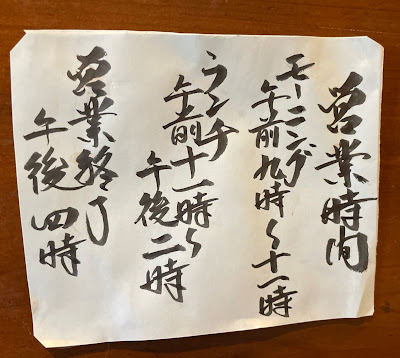 営業時間
モーニング
午前九時〜十一時
ランチ
午前十一時〜
午後二時
営業終了
午後四時